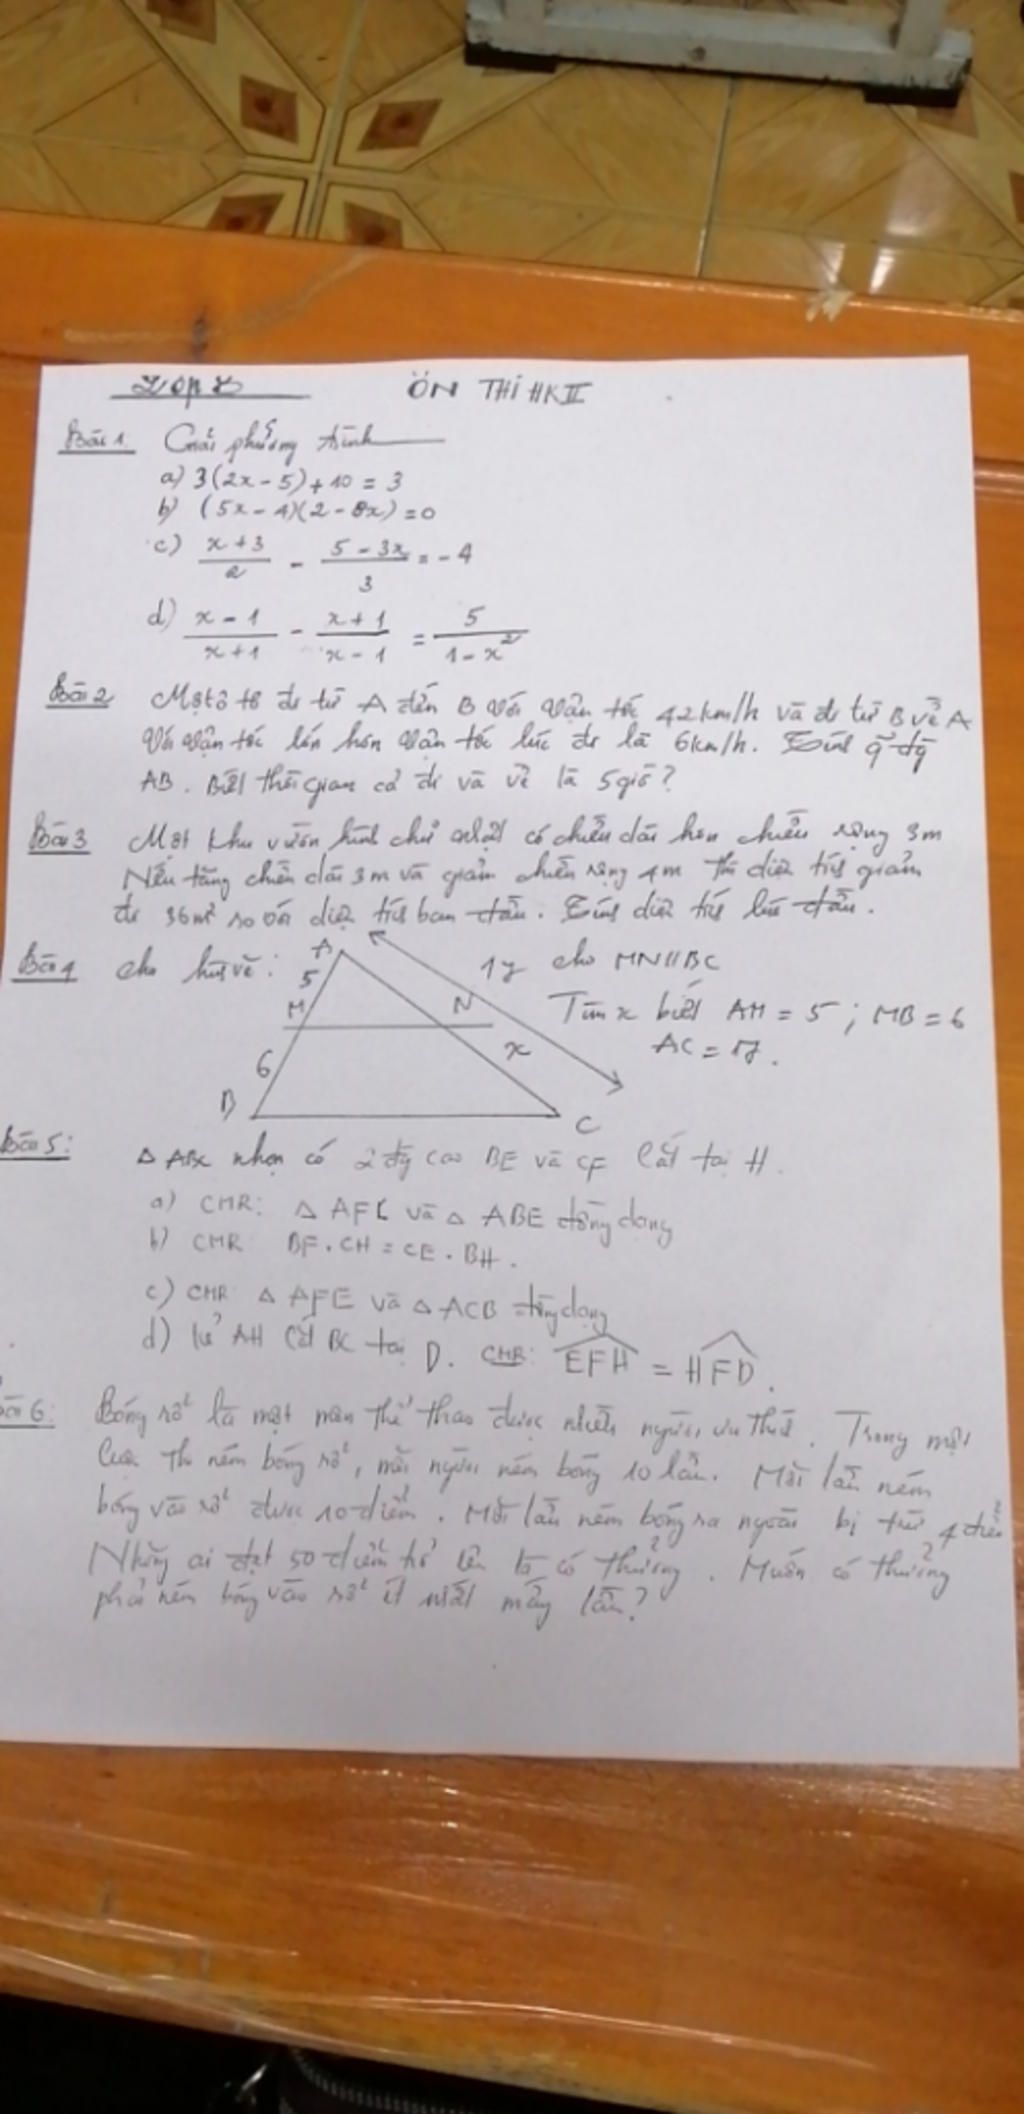 Lớp 8 ÔN THI HK II
Bài 1: Giải phương trình
a) 3(2x - 5) + 10 = 3
b) (5x - 4)(2 - 8x) = 0
c) (x + 3)/2 - (5 - 3x)/3 = - 4
d) (x - 1)/(x + 1) - (x + 1)/(x - 1) = 5/(1 - x²)
Bài 2 Một ô tô đi từ A đến B với vận tốc 42km/h và đi từ B về A
Với vận tốc lớn hơn vận tốc lúc đi là 6km/h. Tính q đg
AB. Biết thời gian cả đi và về là 5 giờ?
Bài 3 Một khu vườn hình chữ nhật có chiều dài hơn chiều rộng 3m
Nếu tăng chiều dài 3m và giảm chiều rộng 4m thì diện tích giảm
đi 36m² so với diện tích ban đầu. Tính diện tích lúc đầu.
Bài 4 Cho hình vẽ: 17 cho MN//BC
Tìm x biết AM = 5 ; MB = 6
AC = 17.
A
5
M N
6 x
B C
Bài 5: Δ ABC nhọn có 2 đg cao BE và CF Cắt tại H.
a) CMR: Δ AFC và Δ ABE đồng dạng
b) CMR BF . CH = CE . BH .
c) CMR Δ AFE và Δ ACB đồng dạng
d) AH Cắt BC tại D. CMR: EFH = HFD.
Bài 6: Bóng rổ là một môn thể thao được nhiều người ưu thích. Trong một
Cuộc thi ném bóng rổ, mỗi người ném bóng 10 lần. Mỗi lần ném
bóng vào rổ được 10 điểm. Mỗi lần ném bóng ra ngoài bị trừ 4 điểm
Những ai đạt 50 điểm trở lên có thưởng. Muốn có thưởng
phải ném bóng vào rổ ít nhất mấy lần?